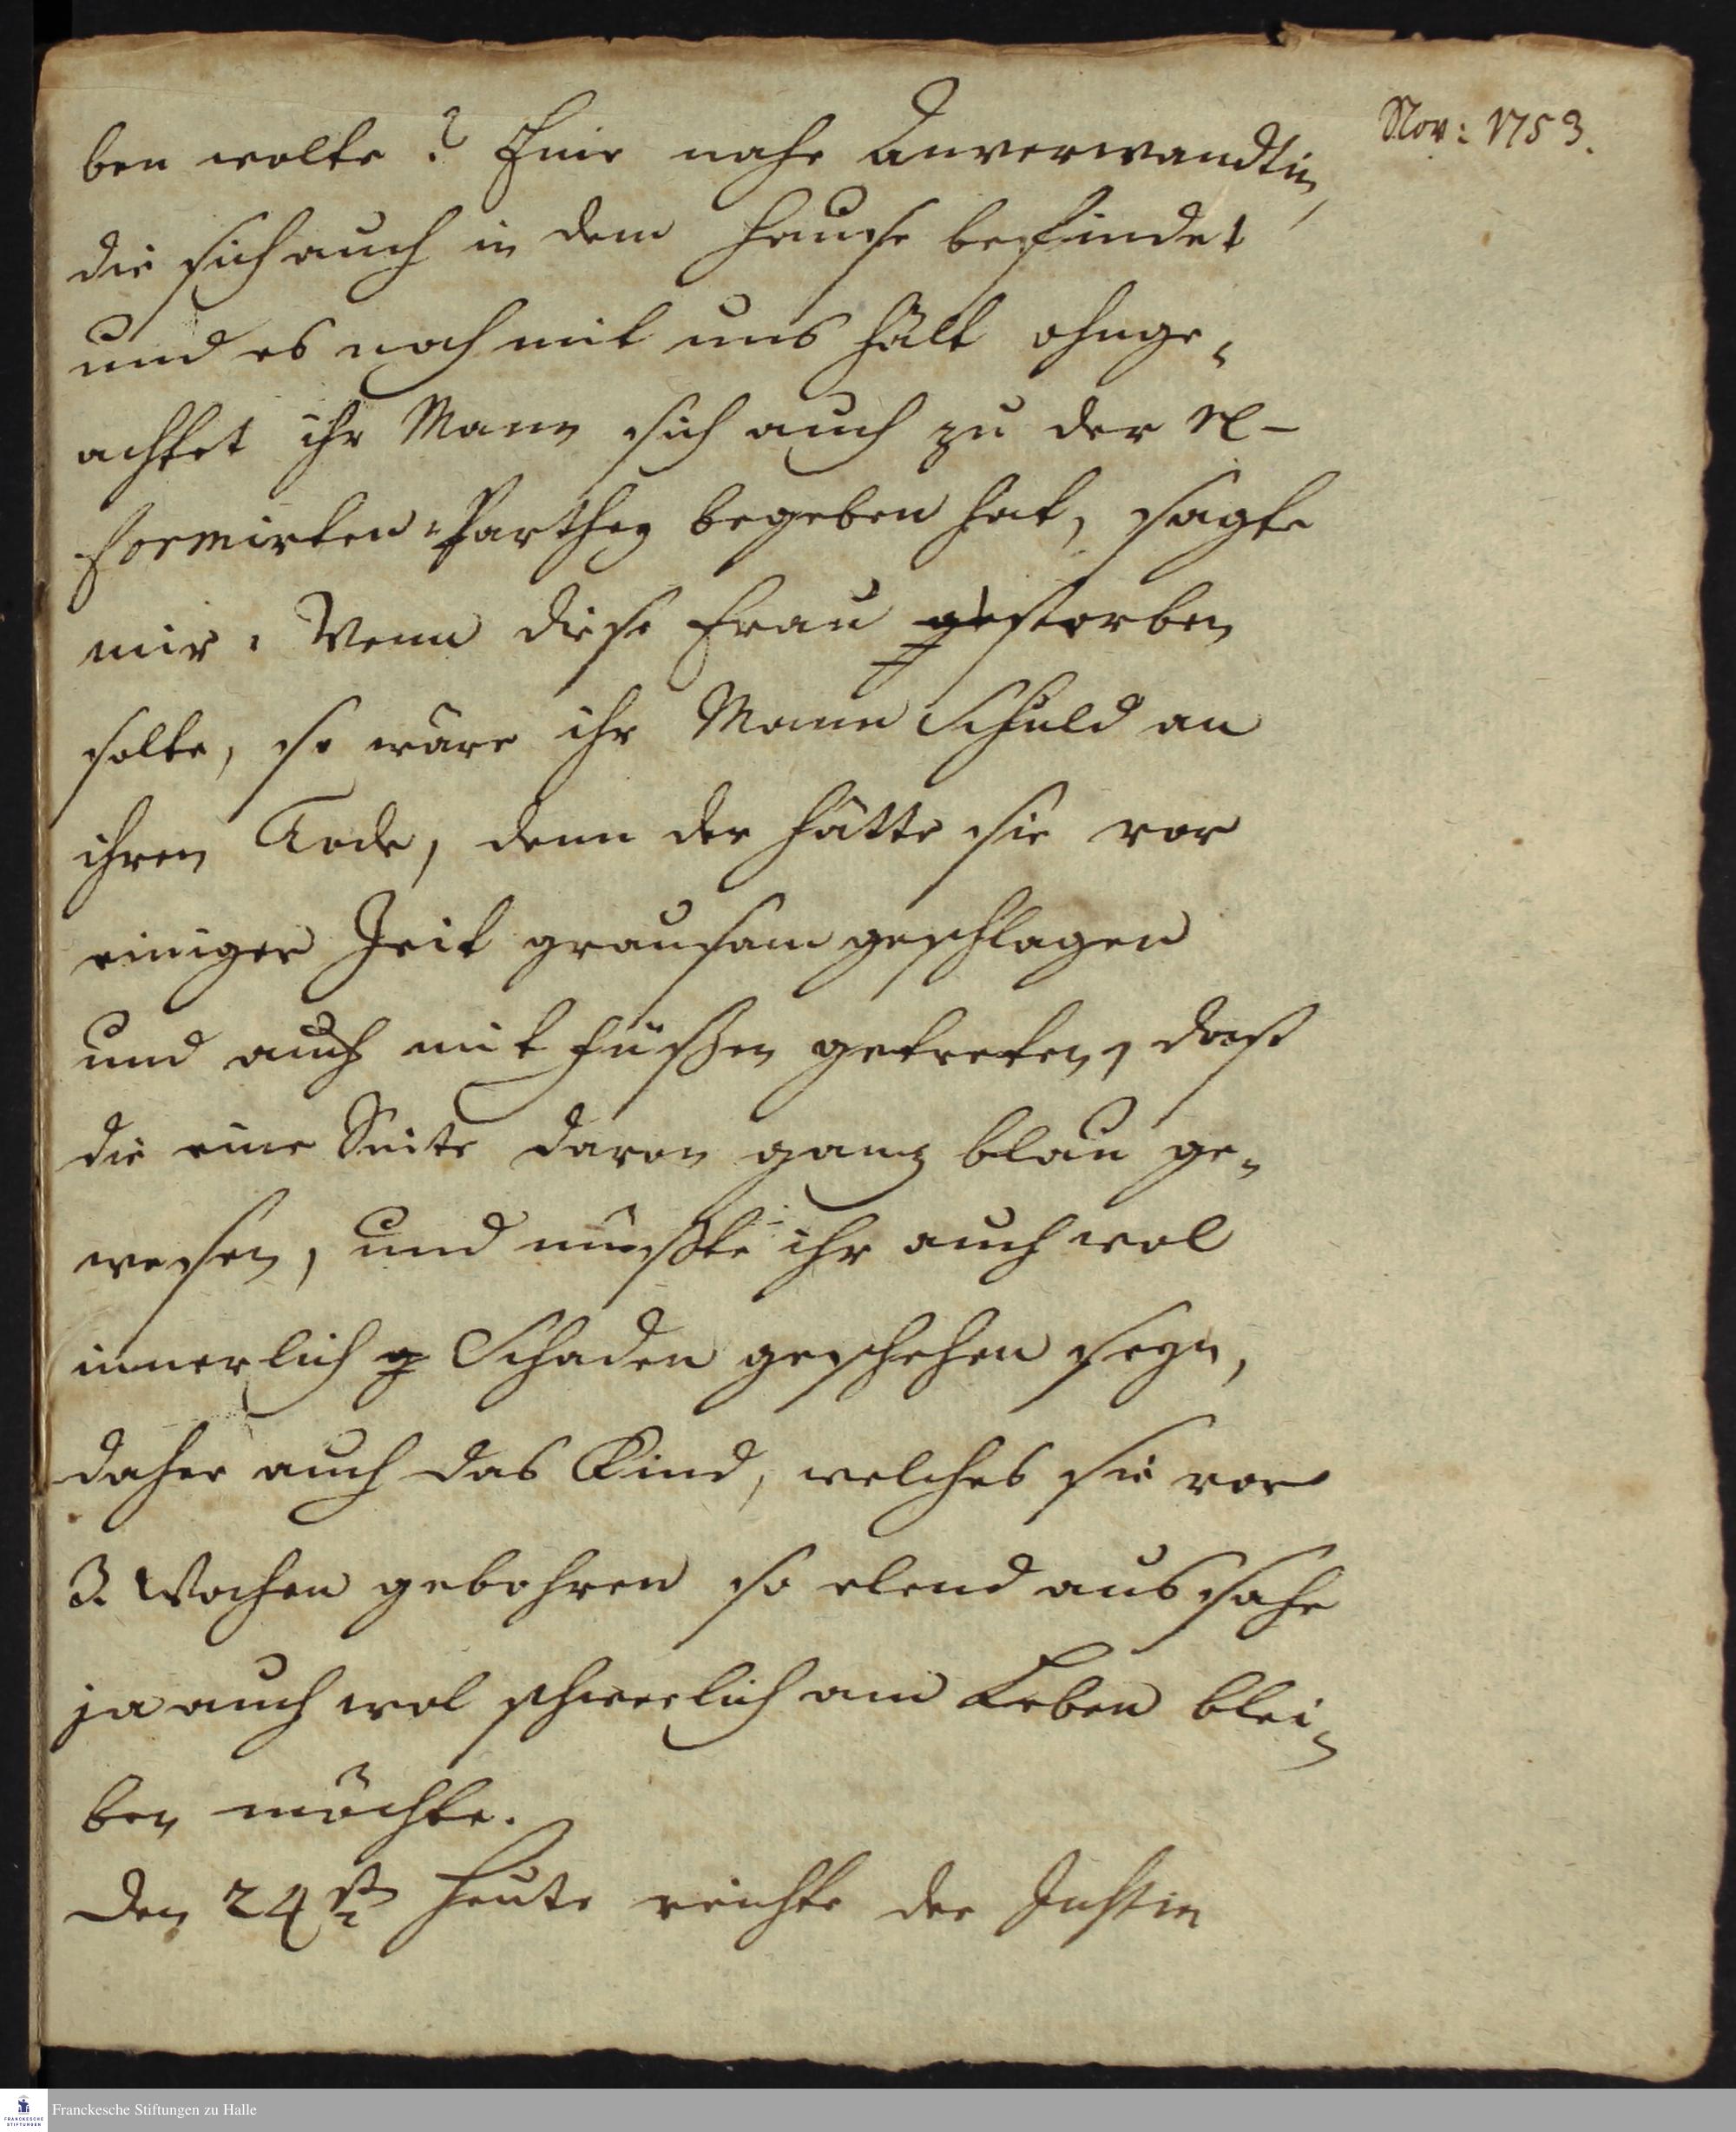 Nov: 1753.
ben wolte? Eine nahe Anverwandtin,
die sich auch in dem Hause befindet
und es noch mit uns hält ohnge-
achtet ihr Mann sich auch zu der Re-
formirten-Parthey begeben hat, sagte
mir: Wenn diese Frau gestorben
solte, so wäre ihr Mann Schuld an
ihren Tode, denn der hätte sie vor
einiger Zeit grausam geschlagen
und auch mit Füßen getreten, daß
die eine Seite davon ganz blau ge-
wesen, und müsste ihr auch wol
innerlich g Schaden geschehen seyn,
daher auch das Kind, welches sie vor
3. Wochen gebohren so elend aussahe
ja auch wol schwerlich am Leben blei-
ben möchte.
Den 24st Heute reichte der Justin
Franckesche Stiftungen zu Halle
FRANCKESCHE
STIFTUNGEN